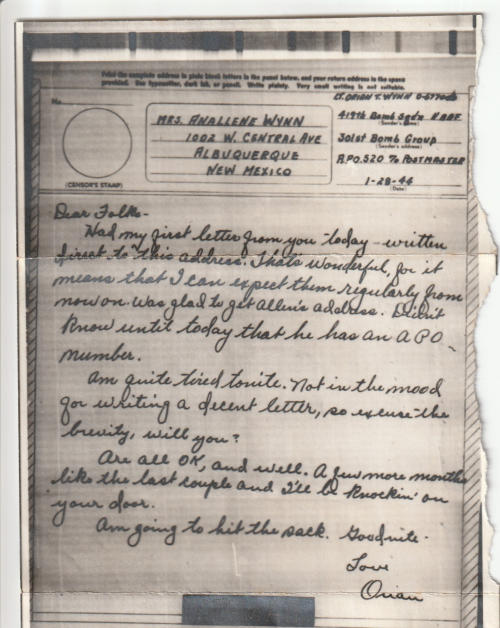 Print the complete address in plain block letters in the panel below, and your return address in the space
provided. Use typewriter, dark ink, or pencil. Write plainly. Very small writing is not suitable.
No.
(CENSOR'S STAMP)
MRS. ANALLENE WYNN
1002 W. CENTRAL AVE
ALBUQUERQUE
NEW MEXICO
LT. ORIAN T. WYNN
419th Bomb Sqd'n
(Sender's name)
301st Bomb Group
(Sender's address)
A.P.O. 520 % POSTMASTER
1-28-44
(Date)
Dear Folks-
Had my first letter from you today - written
direct to this address. That's wonderful, for it
means that I can expect them regularly from
now on. Was glad to get Allen's address. Didn't
know until today that he has an APO
number.
Am quite tired tonite. Not in the mood
for writing a decent letter, so excuse the
brevity, will you?
Are all OK, and well. A few more months
like the last couple and I'll be knockin' on
your door.
Am going to hit the sack. Goodnite.
Love
Orian